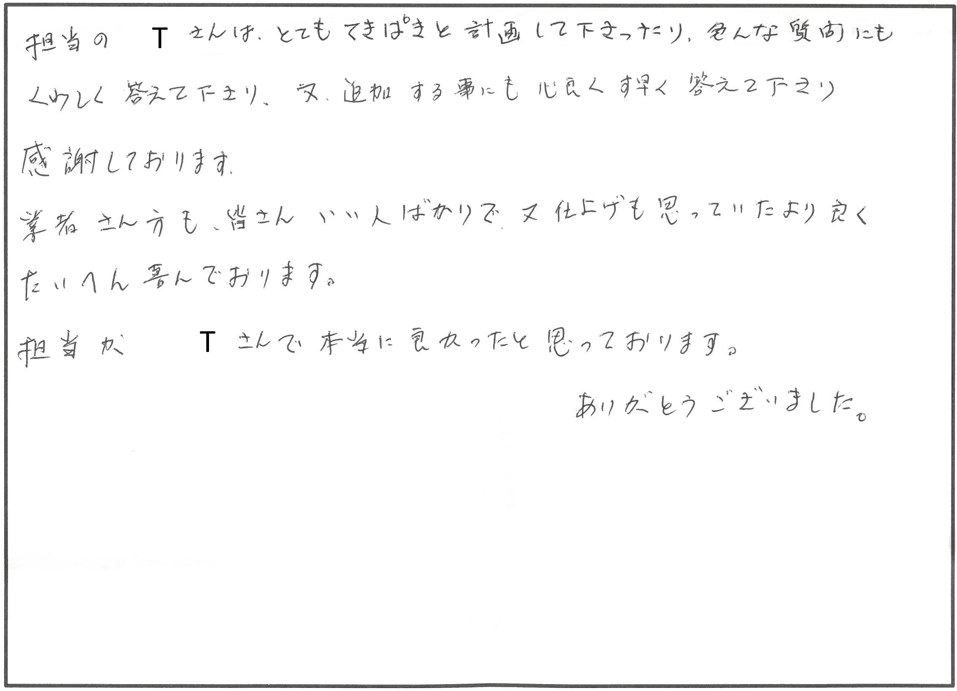 担当の T さんは、とても てきぱきと 計画して下さったり、色んな質問にも
くわしく 答えて下さり、又、追加する事にも 心良く す早く 答えて下さり
感謝しております。
業者さん方も、皆さん いい人ばかりで、又 仕上げも思っていたより良く
たいへん 喜んでおります。
担当が T さんで 本当に 良かったと 思っております。
ありがとうございました。